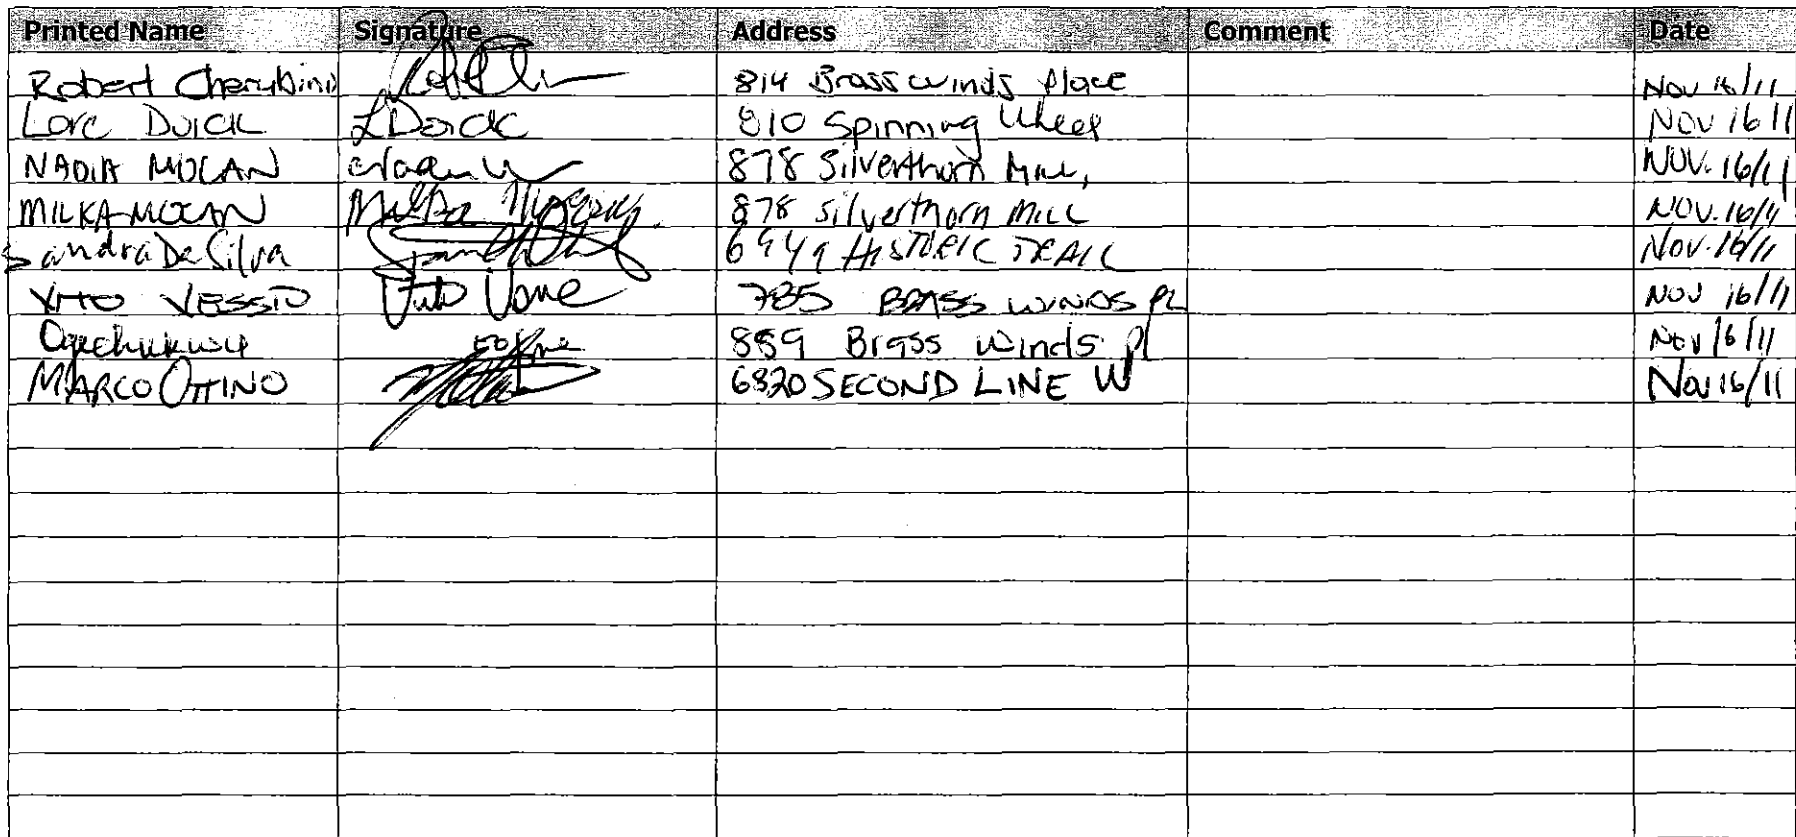 Printed Name Signature Address Comment Date
Robert Cherubino 814 Brass winds place Nov 16/11
Lore Duick LDuick 810 Spinning Wheel Nov 16 11
NADIA MOCAN 878 Silverthorn Mill, NOV. 16/11
MILKA MOCAN Milka Mocan 878 silverthorn mill NOV. 16/11
Sandra DeSilva 6949 HISTORIC TRAIL Nov. 16/11
VITO VESSIO Vito 785 BRASS WINDS PL NOV 16/11
Ogechukwu 889 Brass Winds pl Nov 16/11
MARCO OTTINO 6820 SECOND LINE W Nov 16/11